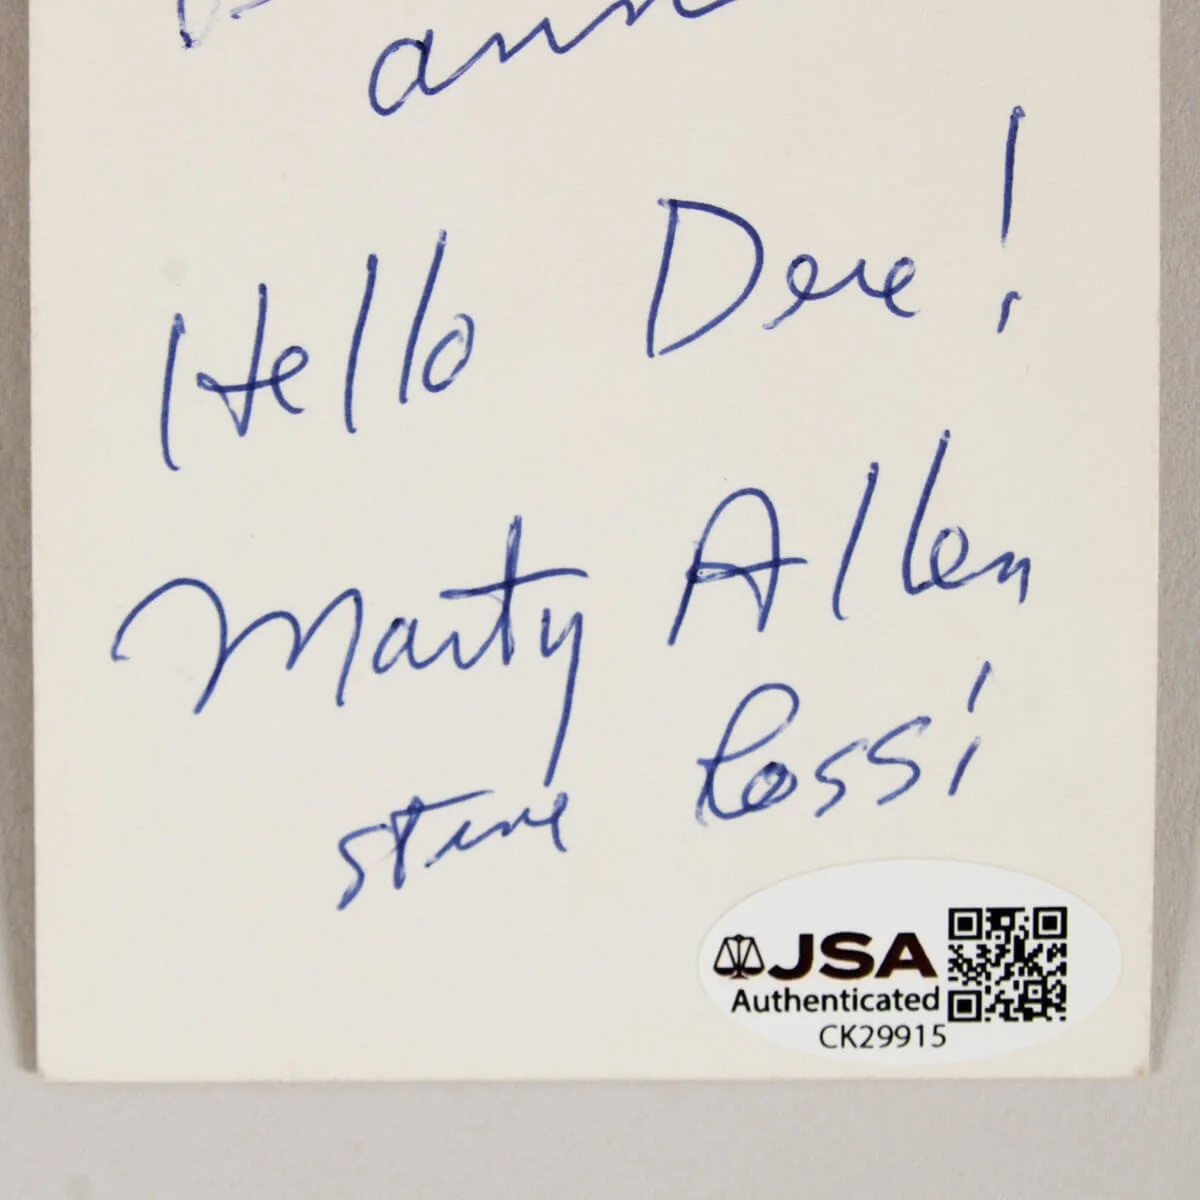 Hello Dere!
Marty Allen
Steve Rossi
JSA
Authenticated
CK29915